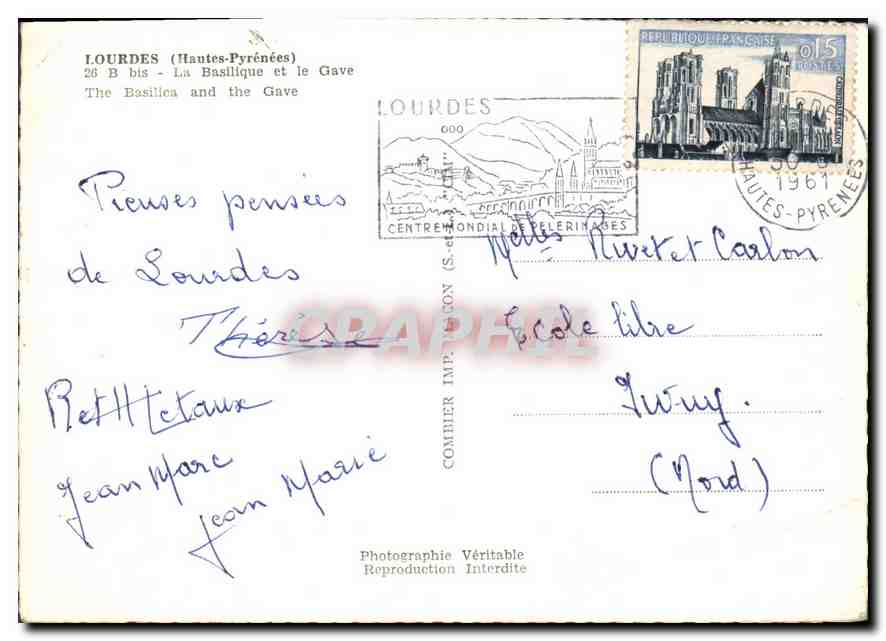 LOURDES (Hautes-Pyrénées)
26 B bis - La Basilique et le Gave
The Basilica and the Gave
REPUBLIQUE FRANÇAISE
0,15
POSTES
LOURDES
CENTRE MONDIAL DE PELERINAGES
1961
HAUTES-PYRENEES
Pieuses pensées
de Lourdes
Thérèse
R et H Letaux
Jean Marc
Jean Marie
COMBIER IMP. MACON (S.-et-L.) "CIM"
Melles Rivet et Carlon
Ecole libre
Iwuy.
(Nord)
CPAPHIL
Photographie Véritable
Reproduction Interdite